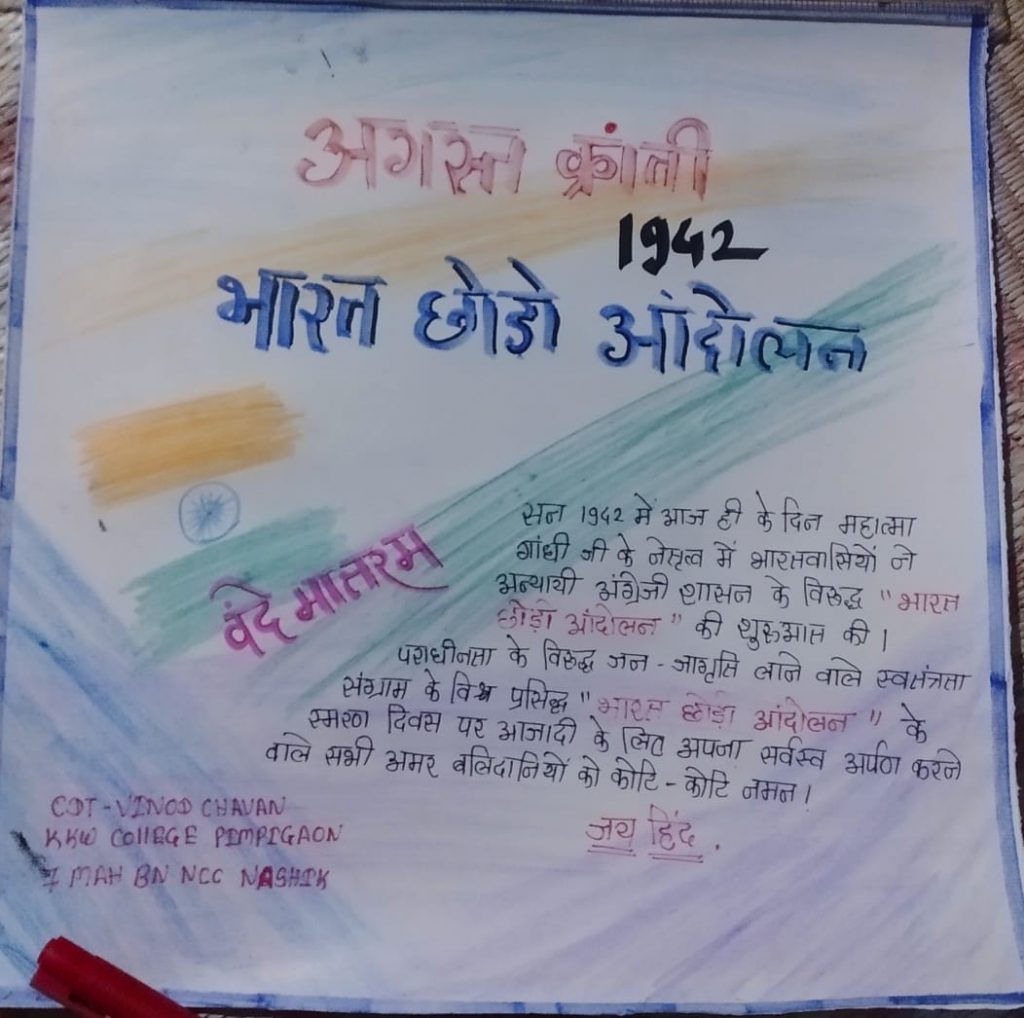 अगस्त क्रांती
1942
भारत छोडो आंदोलन
वंदे मातरम
सन 1942 में आज ही के दिन महात्मा
गांधी जी के नेतृत्व में भारतवासियों ने
अन्यायी अंग्रेजी शासन के विरुद्ध "भारत
छोड़ो आंदोलन" की शुरुआत की।
पराधीनता के विरुद्ध जन-जागृति लाने वाले स्वतंत्रता
संग्राम के विश्व प्रसिद्ध "भारत छोड़ो आंदोलन" के
स्मरण दिवस पर आजादी के लिए अपना सर्वस्व अर्पण करने
वाले सभी अमर बलिदानियों को कोटि-कोटि नमन।
जय हिंद.
CDT-VINOD CHAVAN
KKW COllEGE PIMPIGAON
7 MAH BN NCC NASHIK